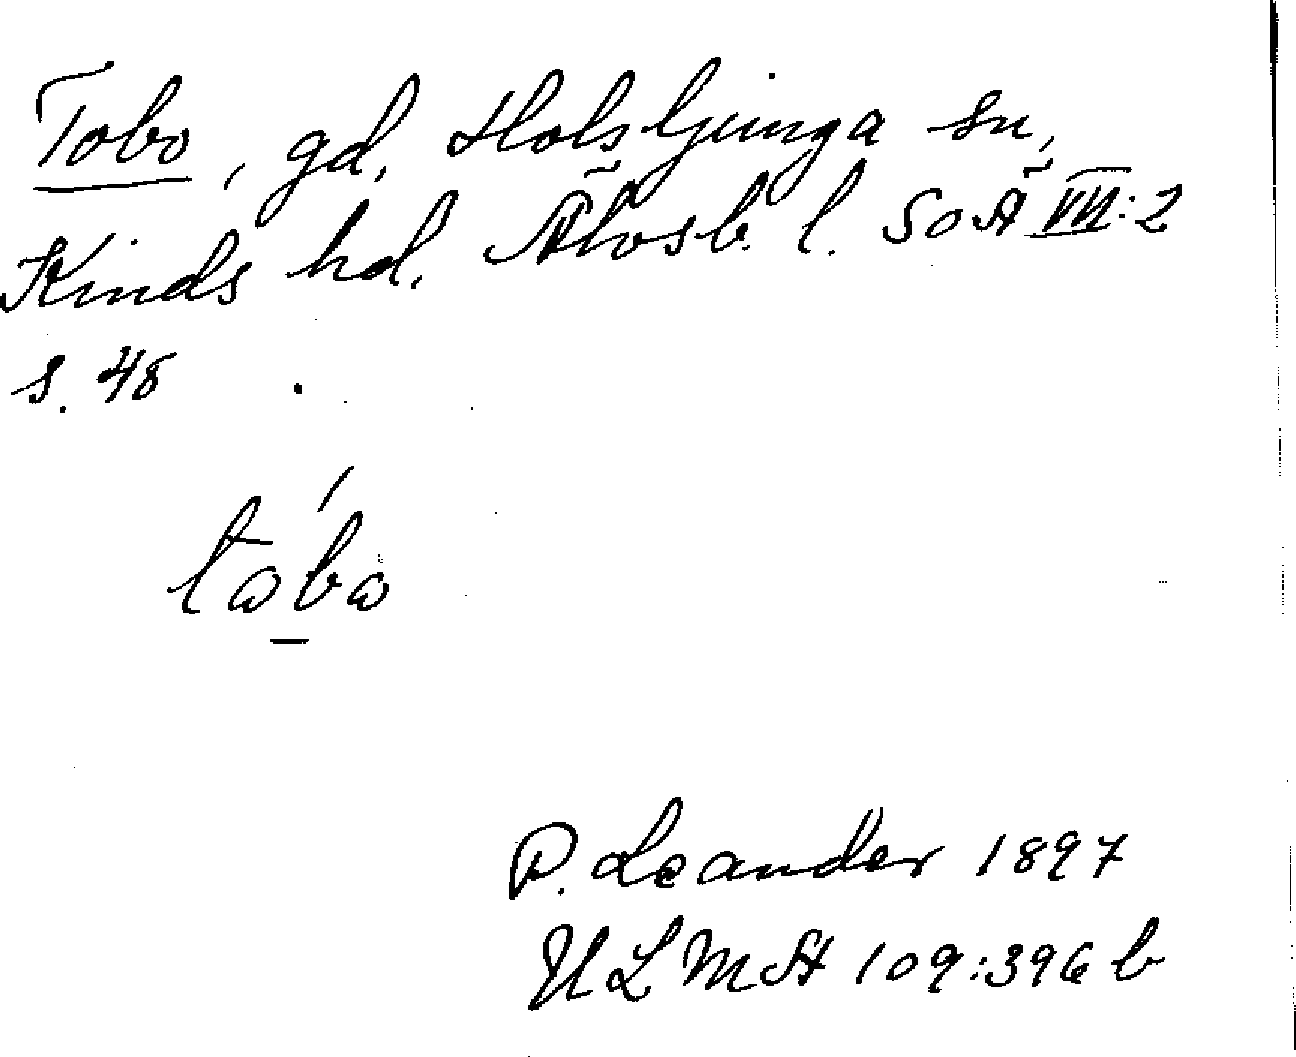 Tobo, gd, Holsljunga sn,
Kinds hd. Älvsb. l. SOÄ VII:2
s. 48
tobo
P. Leander 1897
ULMA 109:396 b